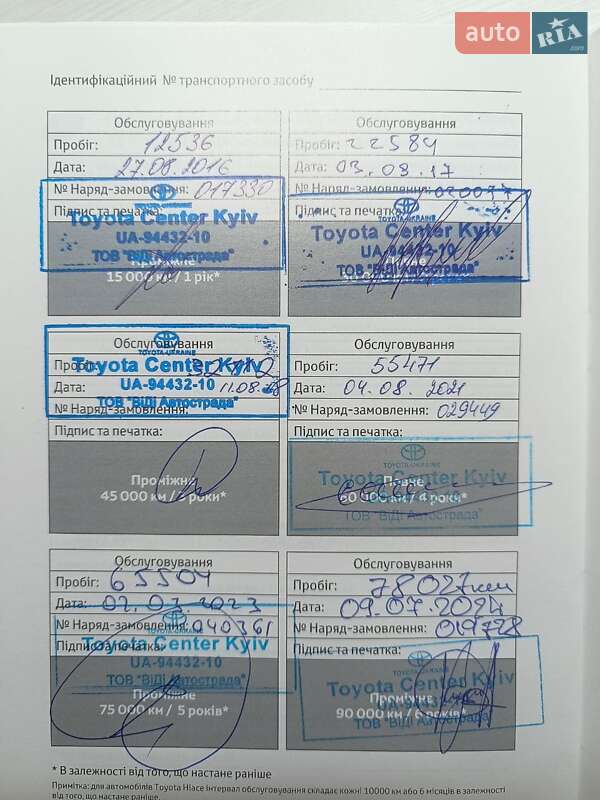 auto RIA.com
Ідентифікаційний № транспортного засобу
Обслуговування
Пробіг: 12536
Дата: 27.08.2016
№ Наряд-замовлення: 017330
Підпис та печатка:
TOYOTA-UKRAINE
Toyota Center Kyiv
UA-94432-10
ТОВ "ВіДі Автострада"
Проміжне
15 000 км / 1 рік*
Обслуговування
Пробіг: 22584
Дата: 03.08.17
№ Наряд-замовлення:
Підпис та печатка:
TOYOTA-UKRAINE
Toyota Center Kyiv
UA-94432-10
ТОВ "ВіДі Автострада"
Обслуговування
Пробіг:
TOYOTA-UKRAINE
Toyota Center Kyiv
Дата: 11.08.18
UA-94432-10
ТОВ "ВіДі Автострада"
№ Наряд-замовлення:
Підпис та печатка:
Проміжне
45 000 км / 3 роки*
Обслуговування
Пробіг: 55471
Дата: 04.08.2021
№ Наряд-замовлення: 029449
Підпис та печатка:
TOYOTA-UKRAINE
Toyota Center Kyiv
ТОВ "ВіДі Автострада"
Повне
60 000 км / 4 роки*
Обслуговування
Пробіг: 65504
Дата: 02.03.2023
№ Наряд-замовлення: 040361
Підпис та печатка:
Toyota Center Kyiv
UA-94432-10
ТОВ "ВіДі Автострада"
Проміжне
75 000 км / 5 років*
Обслуговування
Пробіг: 78027км
Дата: 09.07.2024
№ Наряд-замовлення: 019728
Підпис та печатка:
TOYOTA-UKRAINE
Toyota Center Kyiv
ТОВ "ВіДі Автострада"
Проміжне
90 000 км / 6 років*
* В залежності від того, що настане раніше
Примітка: для автомобілів Toyota Hiace інтервал обслуговування складає кожні 10000 км або 6 місяців в залежності
від того, що настане раніше.